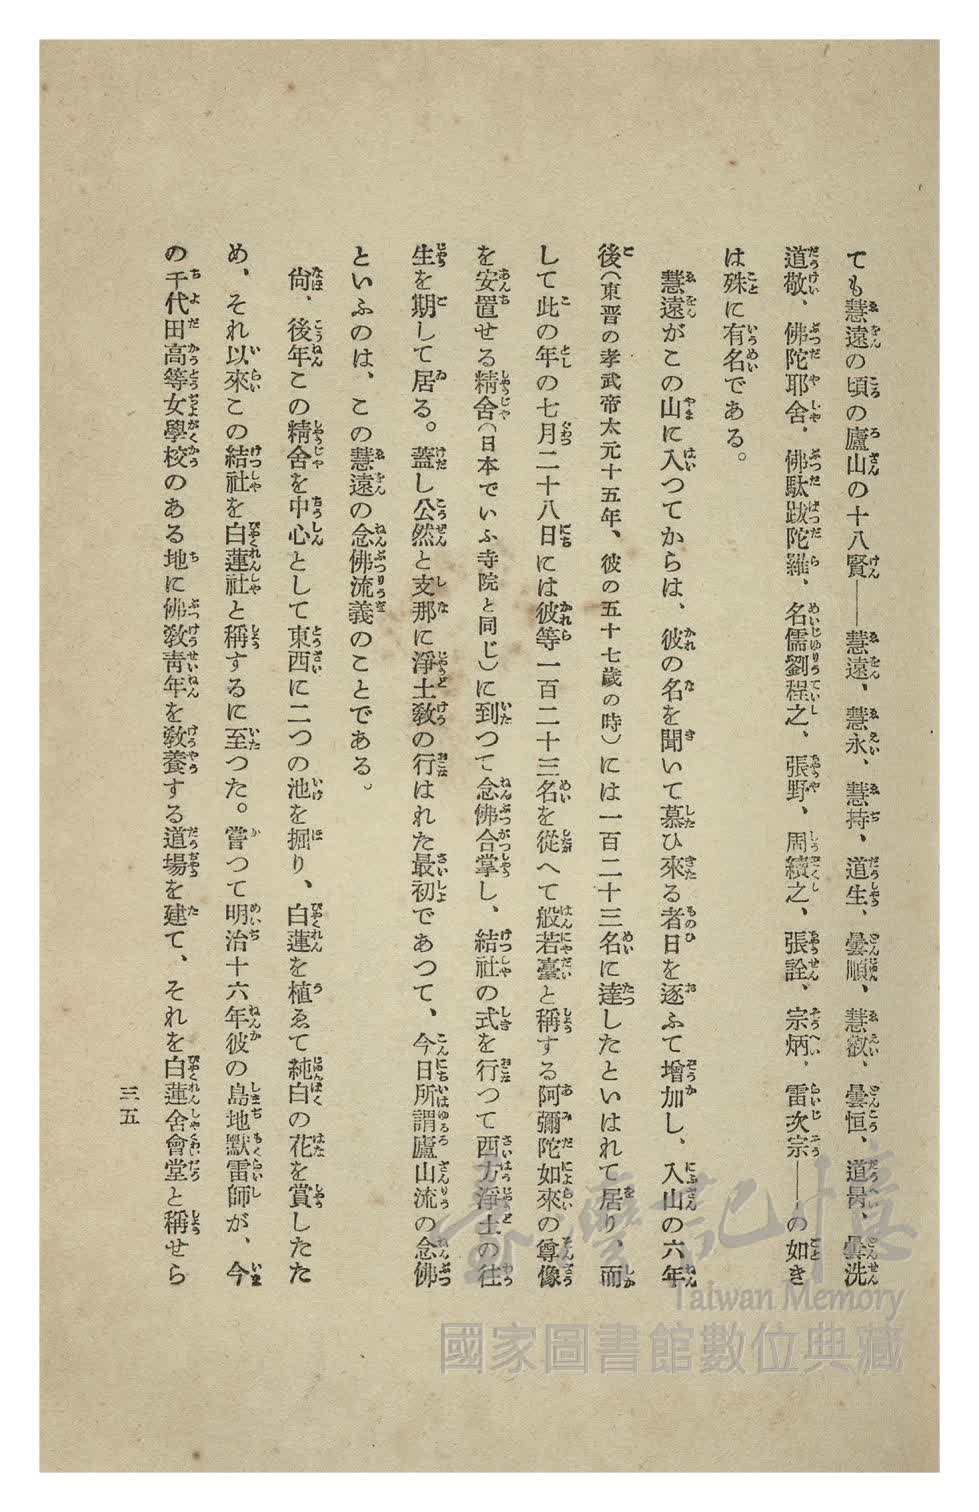 ても慧遠の頃の廬山の十八賢——慧遠、慧永、慧持、道生、曇順、慧叡、曇恒、道昺、曇洗
道敬、佛陀耶舍、佛駄跋陀羅、名儒劉程之、張野、周續之、張詮、宗炳、雷次宗——の如き
は殊に有名である。
慧遠がこの山に入つてからは、彼の名を聞いて慕ひ來る者日を逐ふて增加し、入山の六年
後（東晋の孝武帝太元十五年、彼の五十七歲の時）には一百二十三名に達したといはれて居り、而
して此の年の七月二十八日には彼等一百二十三名を從へて般若臺と稱する阿彌陀如來の尊像
を安置せる精舍（日本でいふ寺院と同じ）に到つて念佛合掌し、結社の式を行つて西方淨土の往
生を期して居る。蓋し公然と支那に淨土敎の行はれた最初であつて、今日所謂廬山流の念佛
といふのは、この慧遠の念佛流義のことである。
尙、後年この精舍を中心として東西に二つの池を掘り、白蓮を植ゑて純白の花を賞したた
め、それ以來この結社を白蓮社と稱するに至つた。嘗つて明治十六年彼の島地默雷師が、今
の千代田高等女學校のある地に佛敎靑年を敎養する道場を建て、それを白蓮舍會堂と稱せら
三五
臺灣記憶
Taiwan Memory
國家圖書館數位典藏